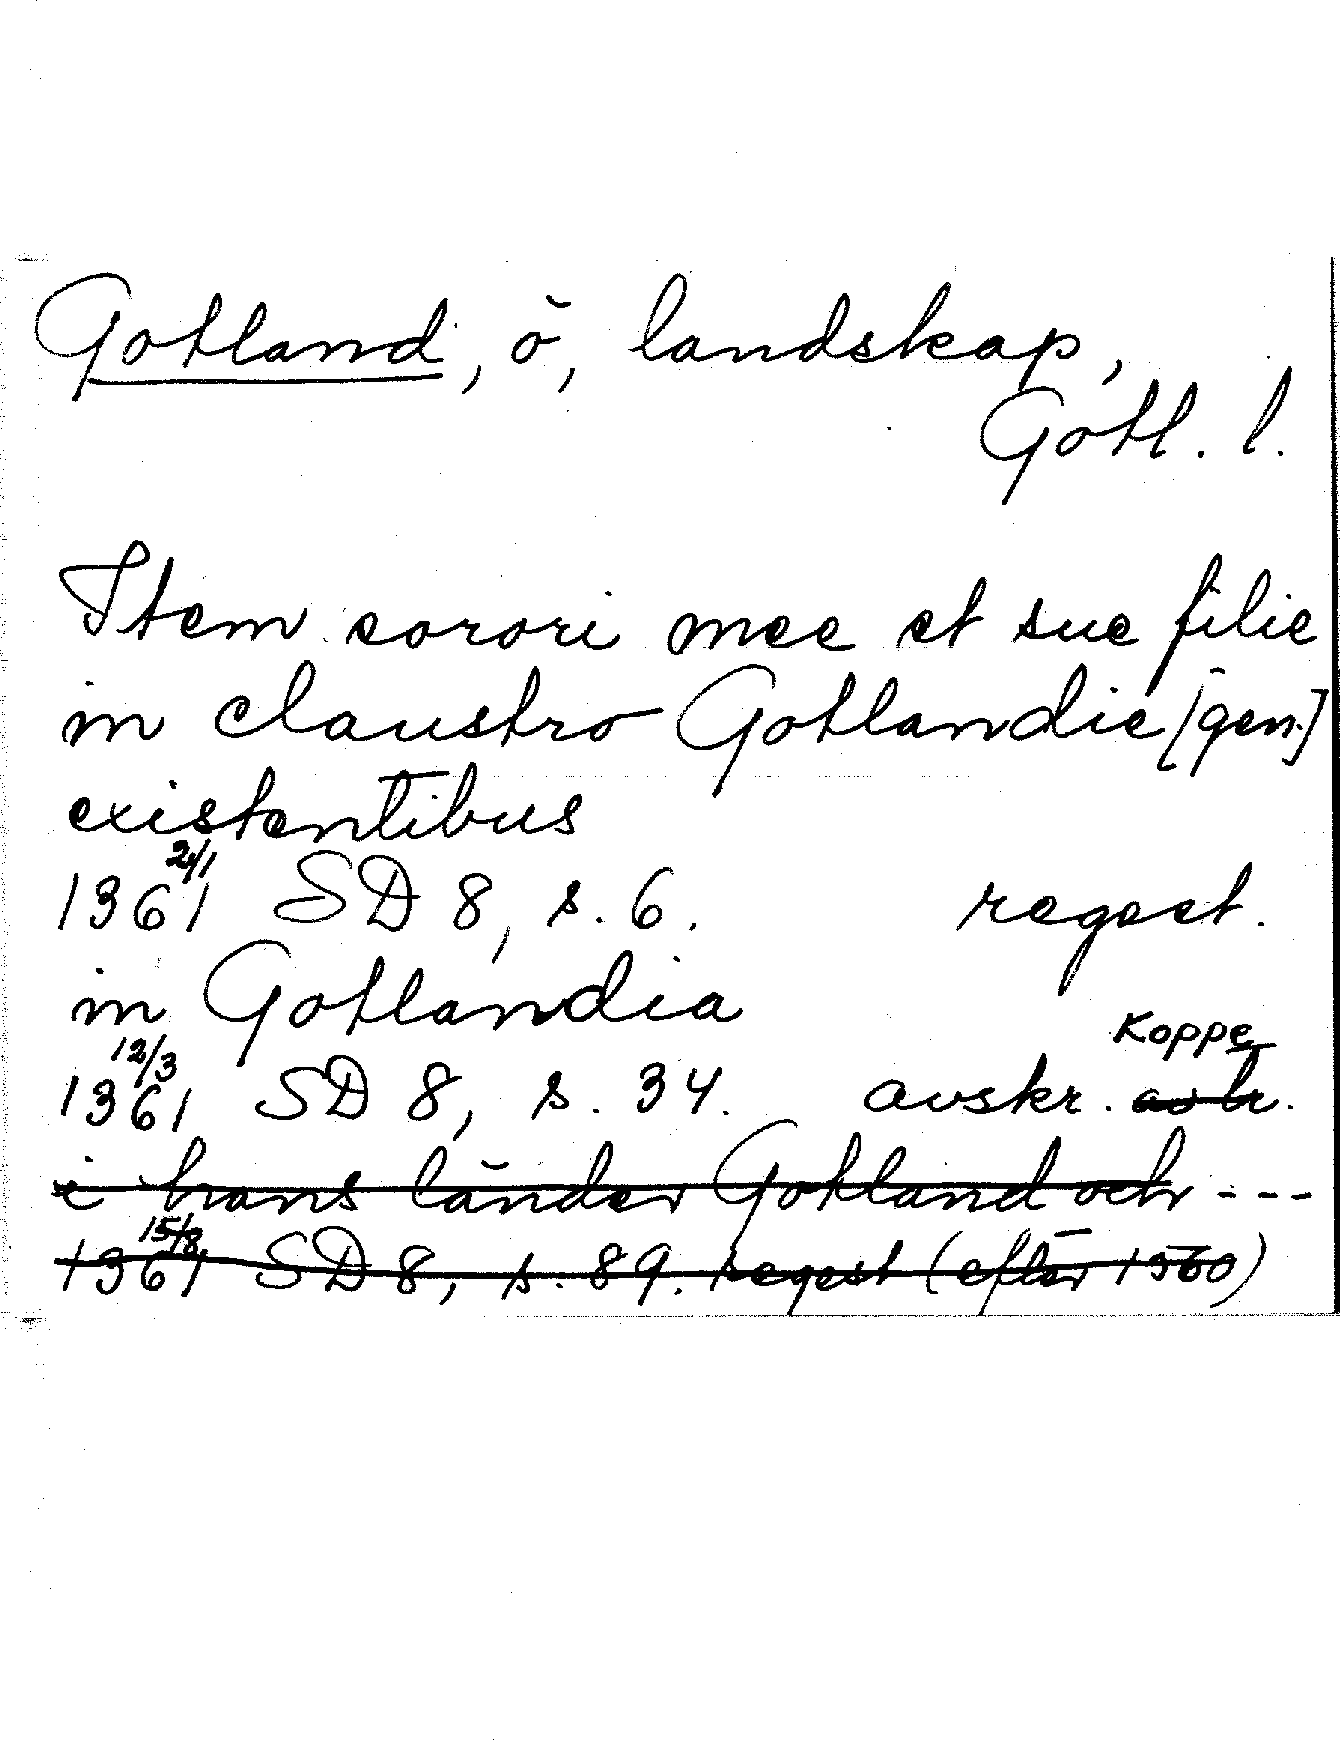 Gotland, ö, landskap,
Gotl. l.
Item sorori mee et sue filie
in claustro Gotlandie [gen.]
existentibus
1361 2/1 SD 8, s. 6. regest.
in Gotlandia
Koppe
1361 12/3 SD 8, s. 34. avskr. av br.
i hans länder Gotland och ---
1361 15/8 SD 8, s. 89. regest (efter 1560)